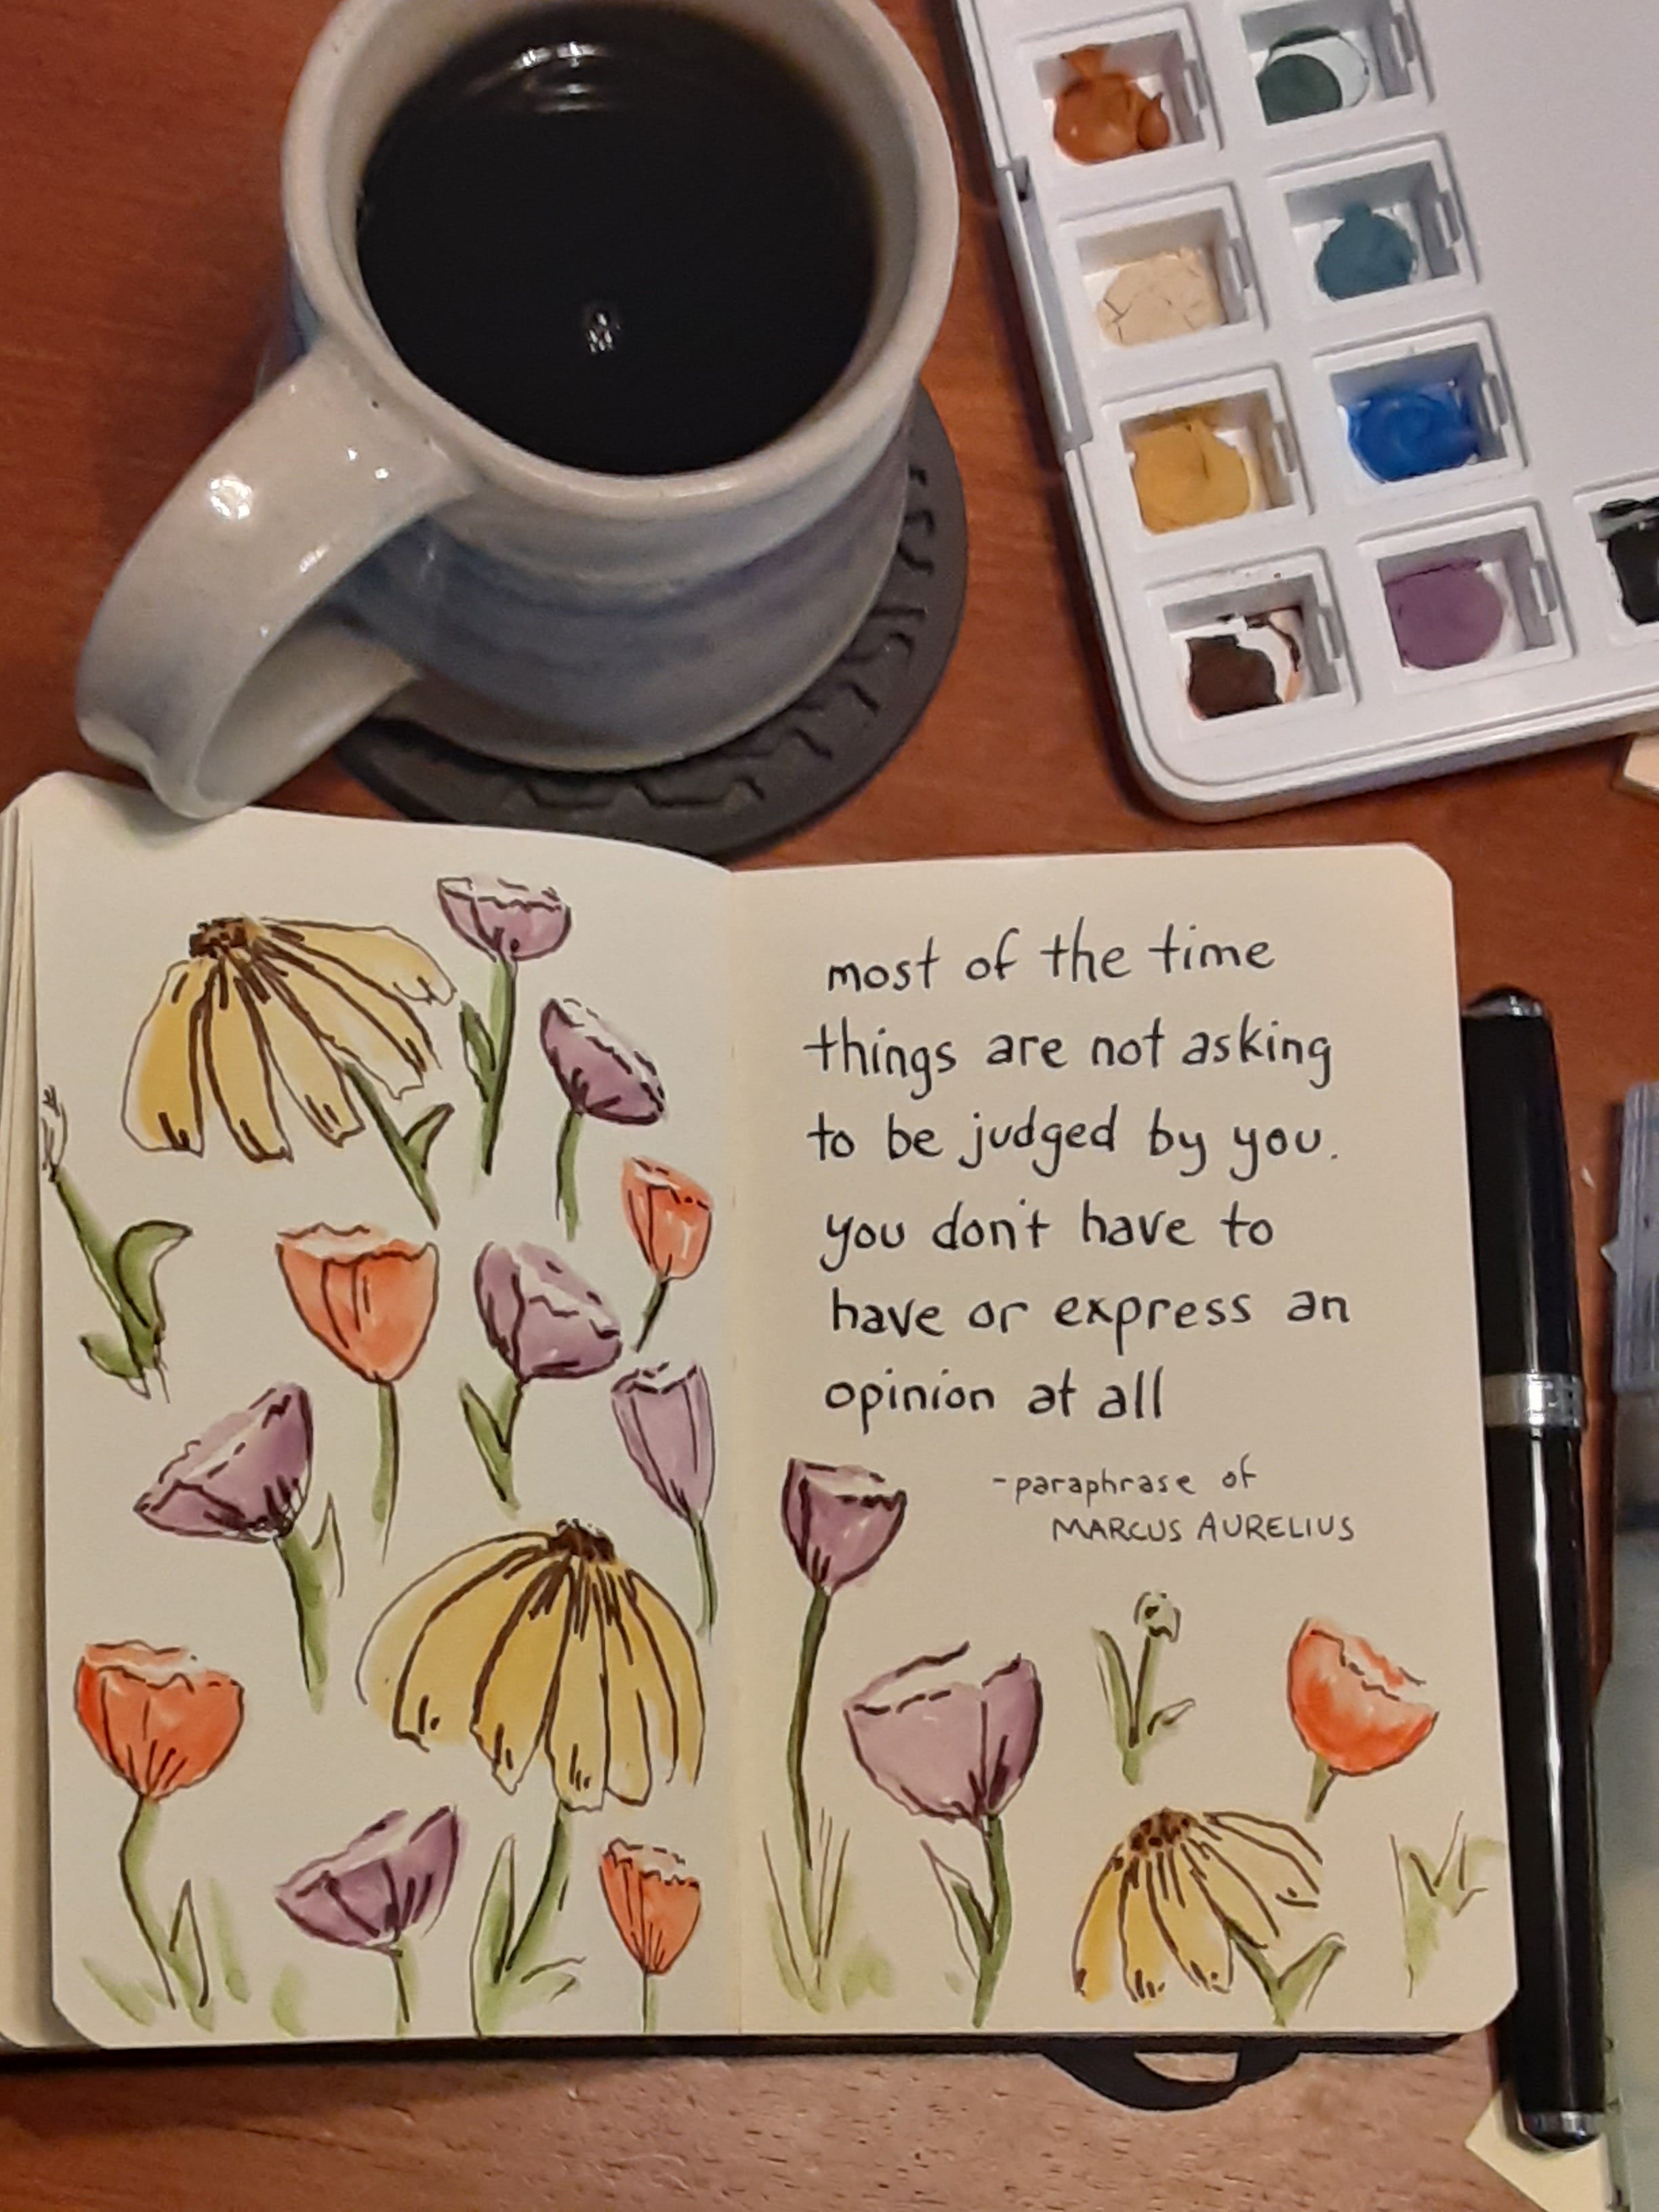 most of the time
things are not asking
to be judged by you.
you don't have to
have or express an
opinion at all
-paraphrase of
MARCUS AURELIUS